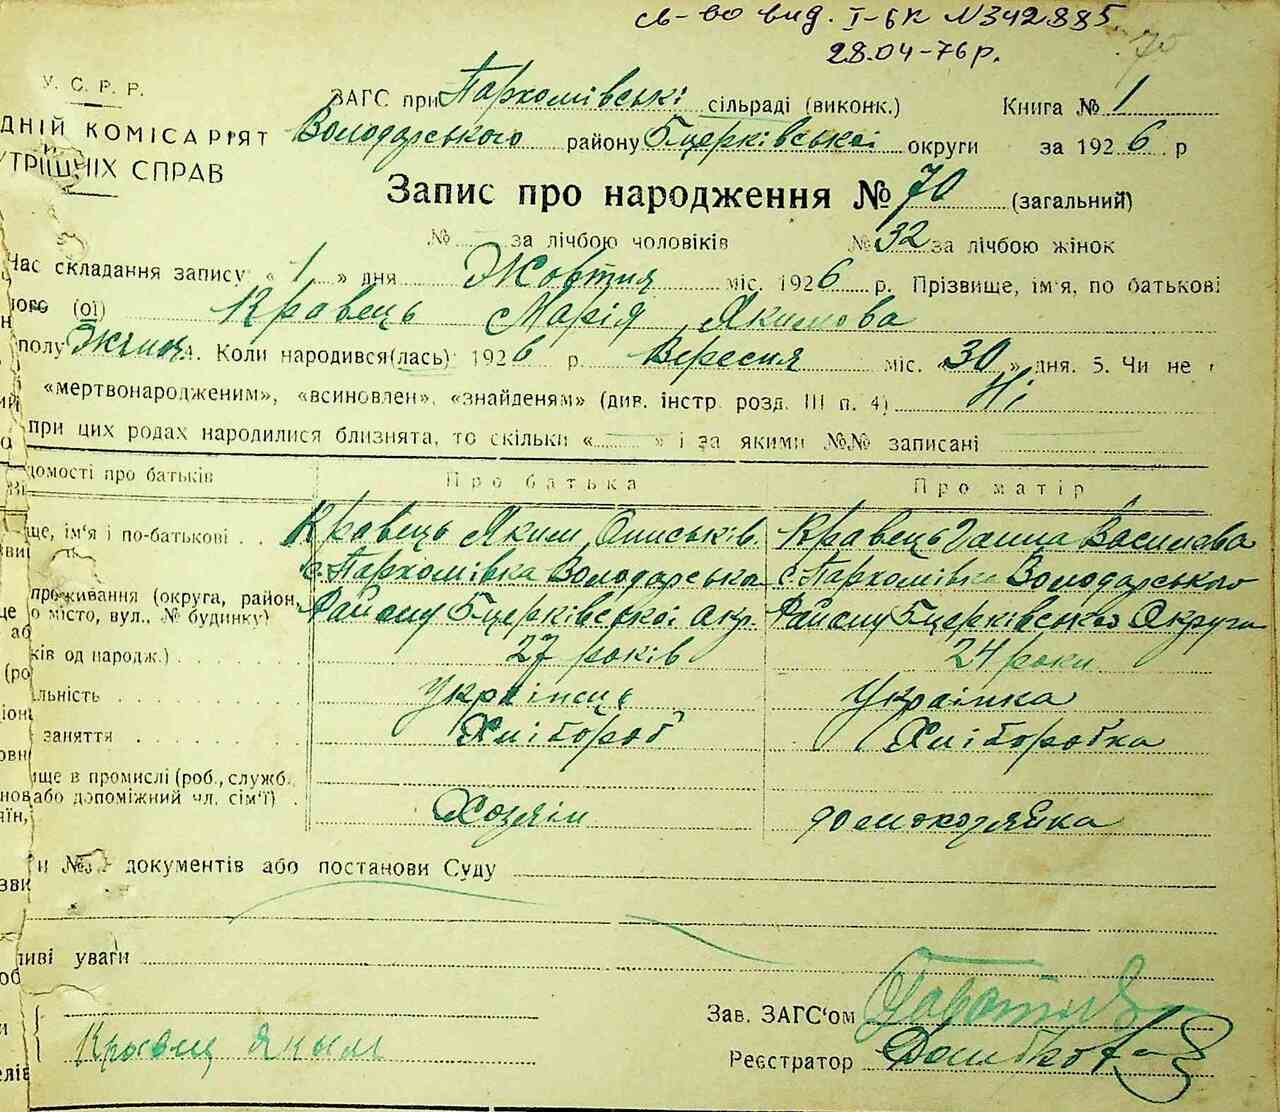 св-во вид. І-БК №342885
28.04-76р.
70
У. С. Р. Р.
ЗАГС при Пархомівські сільраді (виконк.) Книга № 1
ДНІЙ КОМІСАРІЯТ Володарського району Бцерківської округи за 1926 р
ТРІШНІХ СПРАВ
Запис про народження № 70 (загальний)
№ за лічбою чоловіків № 32 за лічбою жінок
Час складання запису „ 1 " дня Жовтня міс. 1926 р. Прізвище, ім'я, по батькові
ного (ої) Кравець Марія Якимова
полу Жіноч 4. Коли народився(лась) 1926 р. Вересня міс. „30„ дня. 5. Чи не
«мертвонародженим», «всиновлен», «знайденям» (див. інстр. розд. III п. 4) Ні
при цих родах народилися близнята, то скільки « » і за якими №№ записані
домості про батьків Про батька Про матір
ще, ім'я і по-батькові . . Кравець Яким Ониськів. Кравець Ганна Василова
с. Пархомівка Володарська с. Пархомівка Володарського
проживання (округа, район, Району Бцерківської окр. Району Бцерківської Округи
о місто, вул., № будинку)
ків од народж.) 27 років 24 роки
льність Українець Українка
заняття Хлібороб Хліборобка
ище в промислі (роб., служб.
або допоміжний чл. сім'ї) . Хозяїн домохозяйка
и №№ документів або постанови Суду
ливі уваги
Зав. ЗАГС'ом
Кравец Яким
Реєстратор